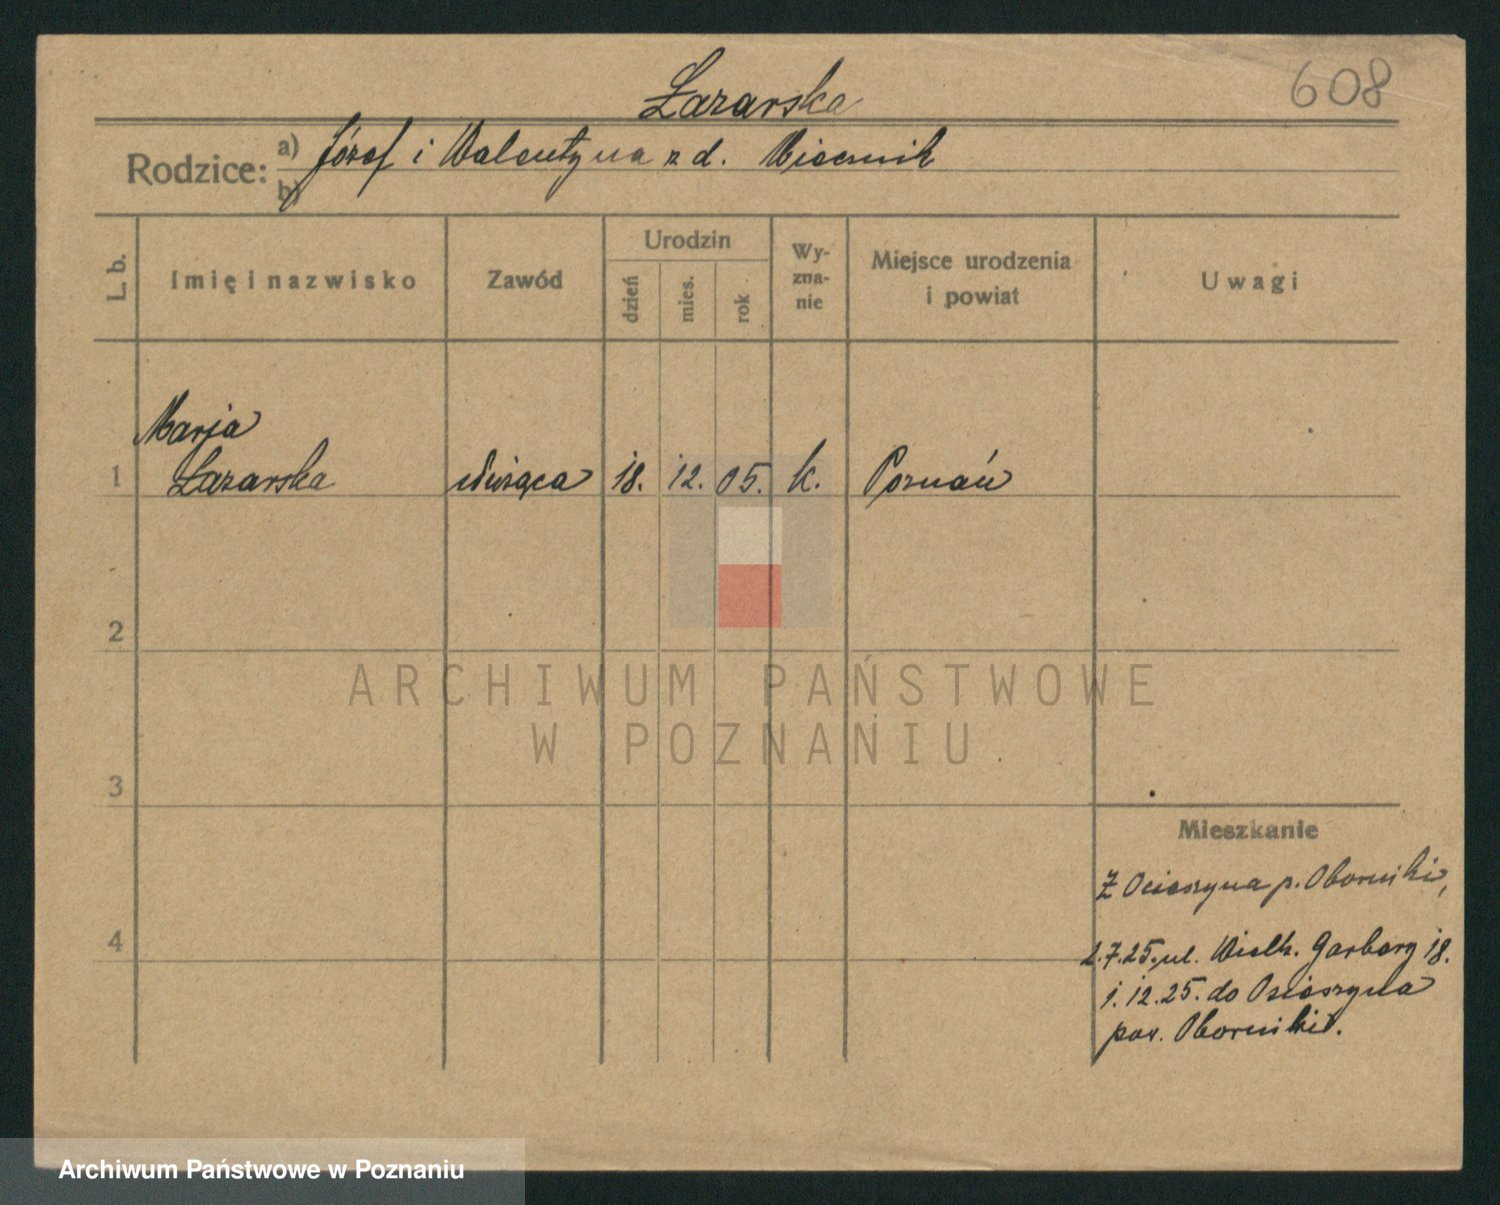 608
Łazarska
Rodzice: a) Józef i Walentyna z d. Miecznik
b)
L. b.
Imię i nazwisko
Zawód
Urodzin
dzień
mies.
rok
Wy-
zna-
nie
Miejsce urodzenia
i powiat
Uwagi
Marja
1 Łazarska służąca 18. 12. 05. k. Poznań
2
ARCHIWUM PAŃSTWOWE
W POZNANIU
3
Mieszkanie
Z Ocieszyna p. Oborniki,
4
2.7.25. ul. Wielk. Garbary 18.
1.12.25. do Ocieszyna
pow. Oborniki.
Archiwum Państwowe w Poznaniu